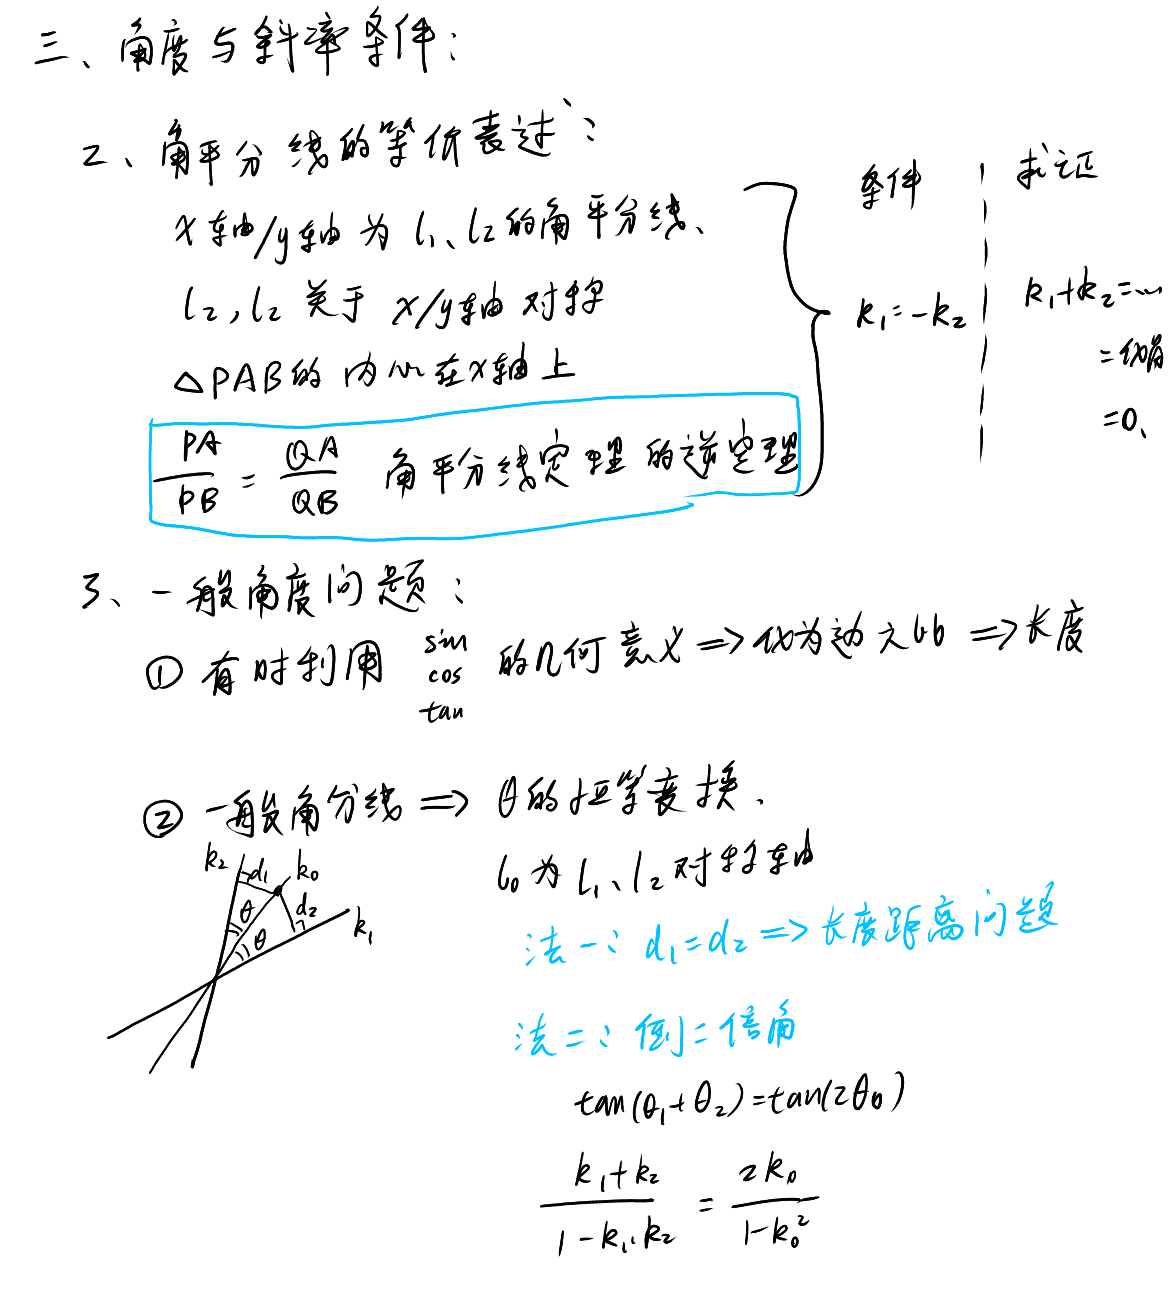 三、角度与斜率条件：
2、角平分线的等价表述：
x轴/y轴为l₁、l₂的角平分线、
l₂，l₂关于x/y轴对称
△PAB的内心在x轴上
PA/PB = QA/QB 角平分线定理的逆定理
条件
k₁=-k₂
求证
k₁+k₂=…
=化简
=0、
3、一般角度问题：
①有时利用 sin cos tan 的几何意义⇒化为边之比⇒长度
②一般角分线⇒θ的恒等变换.
l₀为l₁、l₂对称轴
k₂ d₁ k₀
θ d₂
θ k₁
法一：d₁=d₂⇒长度距离问题
法二：倒二倍角
tan(θ₁+θ₂)=tan(2θ₀)
(k₁+k₂)/(1-k₁·k₂) = 2k₀/(1-k₀²)